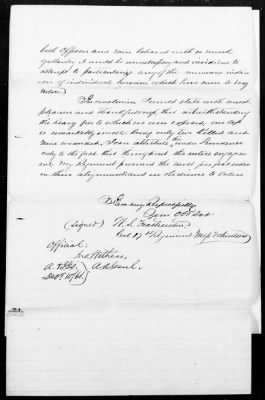 both Officers and men behaved with so much
gallantry, it would be unnecessary and invidious to
attempt to particularize any of the numerous instan-
ces of individual heroism which have come to my
notice.
In conclusion I would state with much
pleasure and thankfulness, that notwithstanding
the heavy fire to which we were exposed our loss
is remarkably small being only two killed and
nine wounded. I can attribute this under Providence
only to the fact that throughout the entire engagem-
ent, my Regiment preserved the most perfect order
in their alignments and in obedience to orders
I am very Respectfully
Your Obt Svt
(signed) W. S. Featherston
Col 17th Regiment Miss Volunteers
Official:
Jno Withers,
A. A. Genl.